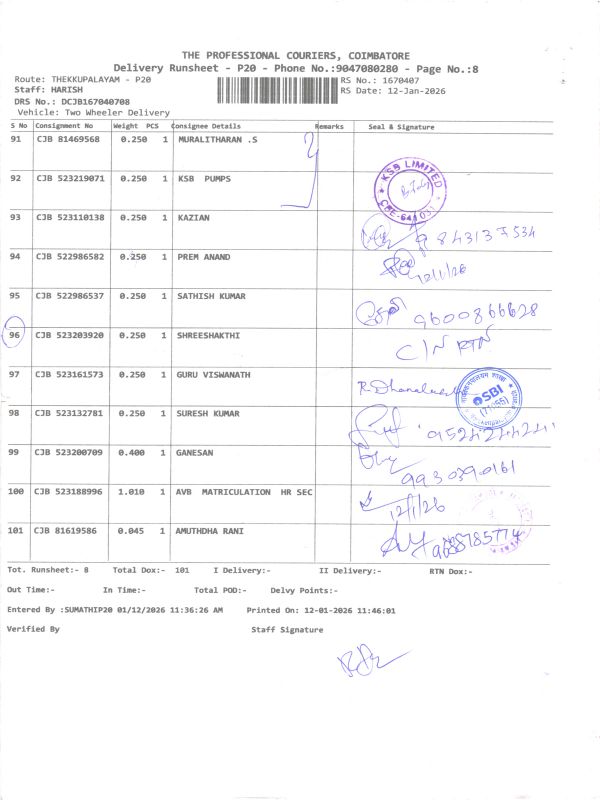 THE PROFESSIONAL COURIERS, COIMBATORE
Delivery Runsheet - P20 - Phone No.:9047080280 - Page No.:8
Route: THEKKUPALAYAM - P20 RS No.: 1670407
Staff: HARISH RS Date: 12-Jan-2026
DRS No.: DCJB167040708
Vehicle: Two Wheeler Delivery
S No Consignment No Weight PCS Consignee Details Remarks Seal & Signature
91 CJB 81469568 0.250 1 MURALITHARAN .S
92 CJB 523219071 0.250 1 KSB PUMPS KSB LIMITED CBE-641031
93 CJB 523110138 0.250 1 KAZIAN 9843137534
94 CJB 522986582 0.250 1 PREM ANAND 12/1/26
95 CJB 522986537 0.250 1 SATHISH KUMAR 9600866628
96 CJB 523203920 0.250 1 SHREESHAKTHI C/N RTN
97 CJB 523161573 0.250 1 GURU VISWANATH SBI
98 CJB 523132781 0.250 1 SURESH KUMAR
99 CJB 523200709 0.400 1 GANESAN 9930390161
100 CJB 523188996 1.010 1 AVB MATRICULATION HR SEC 12/1/26
101 CJB 81619586 0.045 1 AMUTHDHA RANI
Tot. Runsheet:- 8 Total Dox:- 101 I Delivery:- II Delivery:- RTN Dox:-
Out Time:- In Time:- Total POD:- Delvy Points:-
Entered By :SUMATHIP20 01/12/2026 11:36:26 AM Printed On: 12-01-2026 11:46:01
Verified By Staff Signature